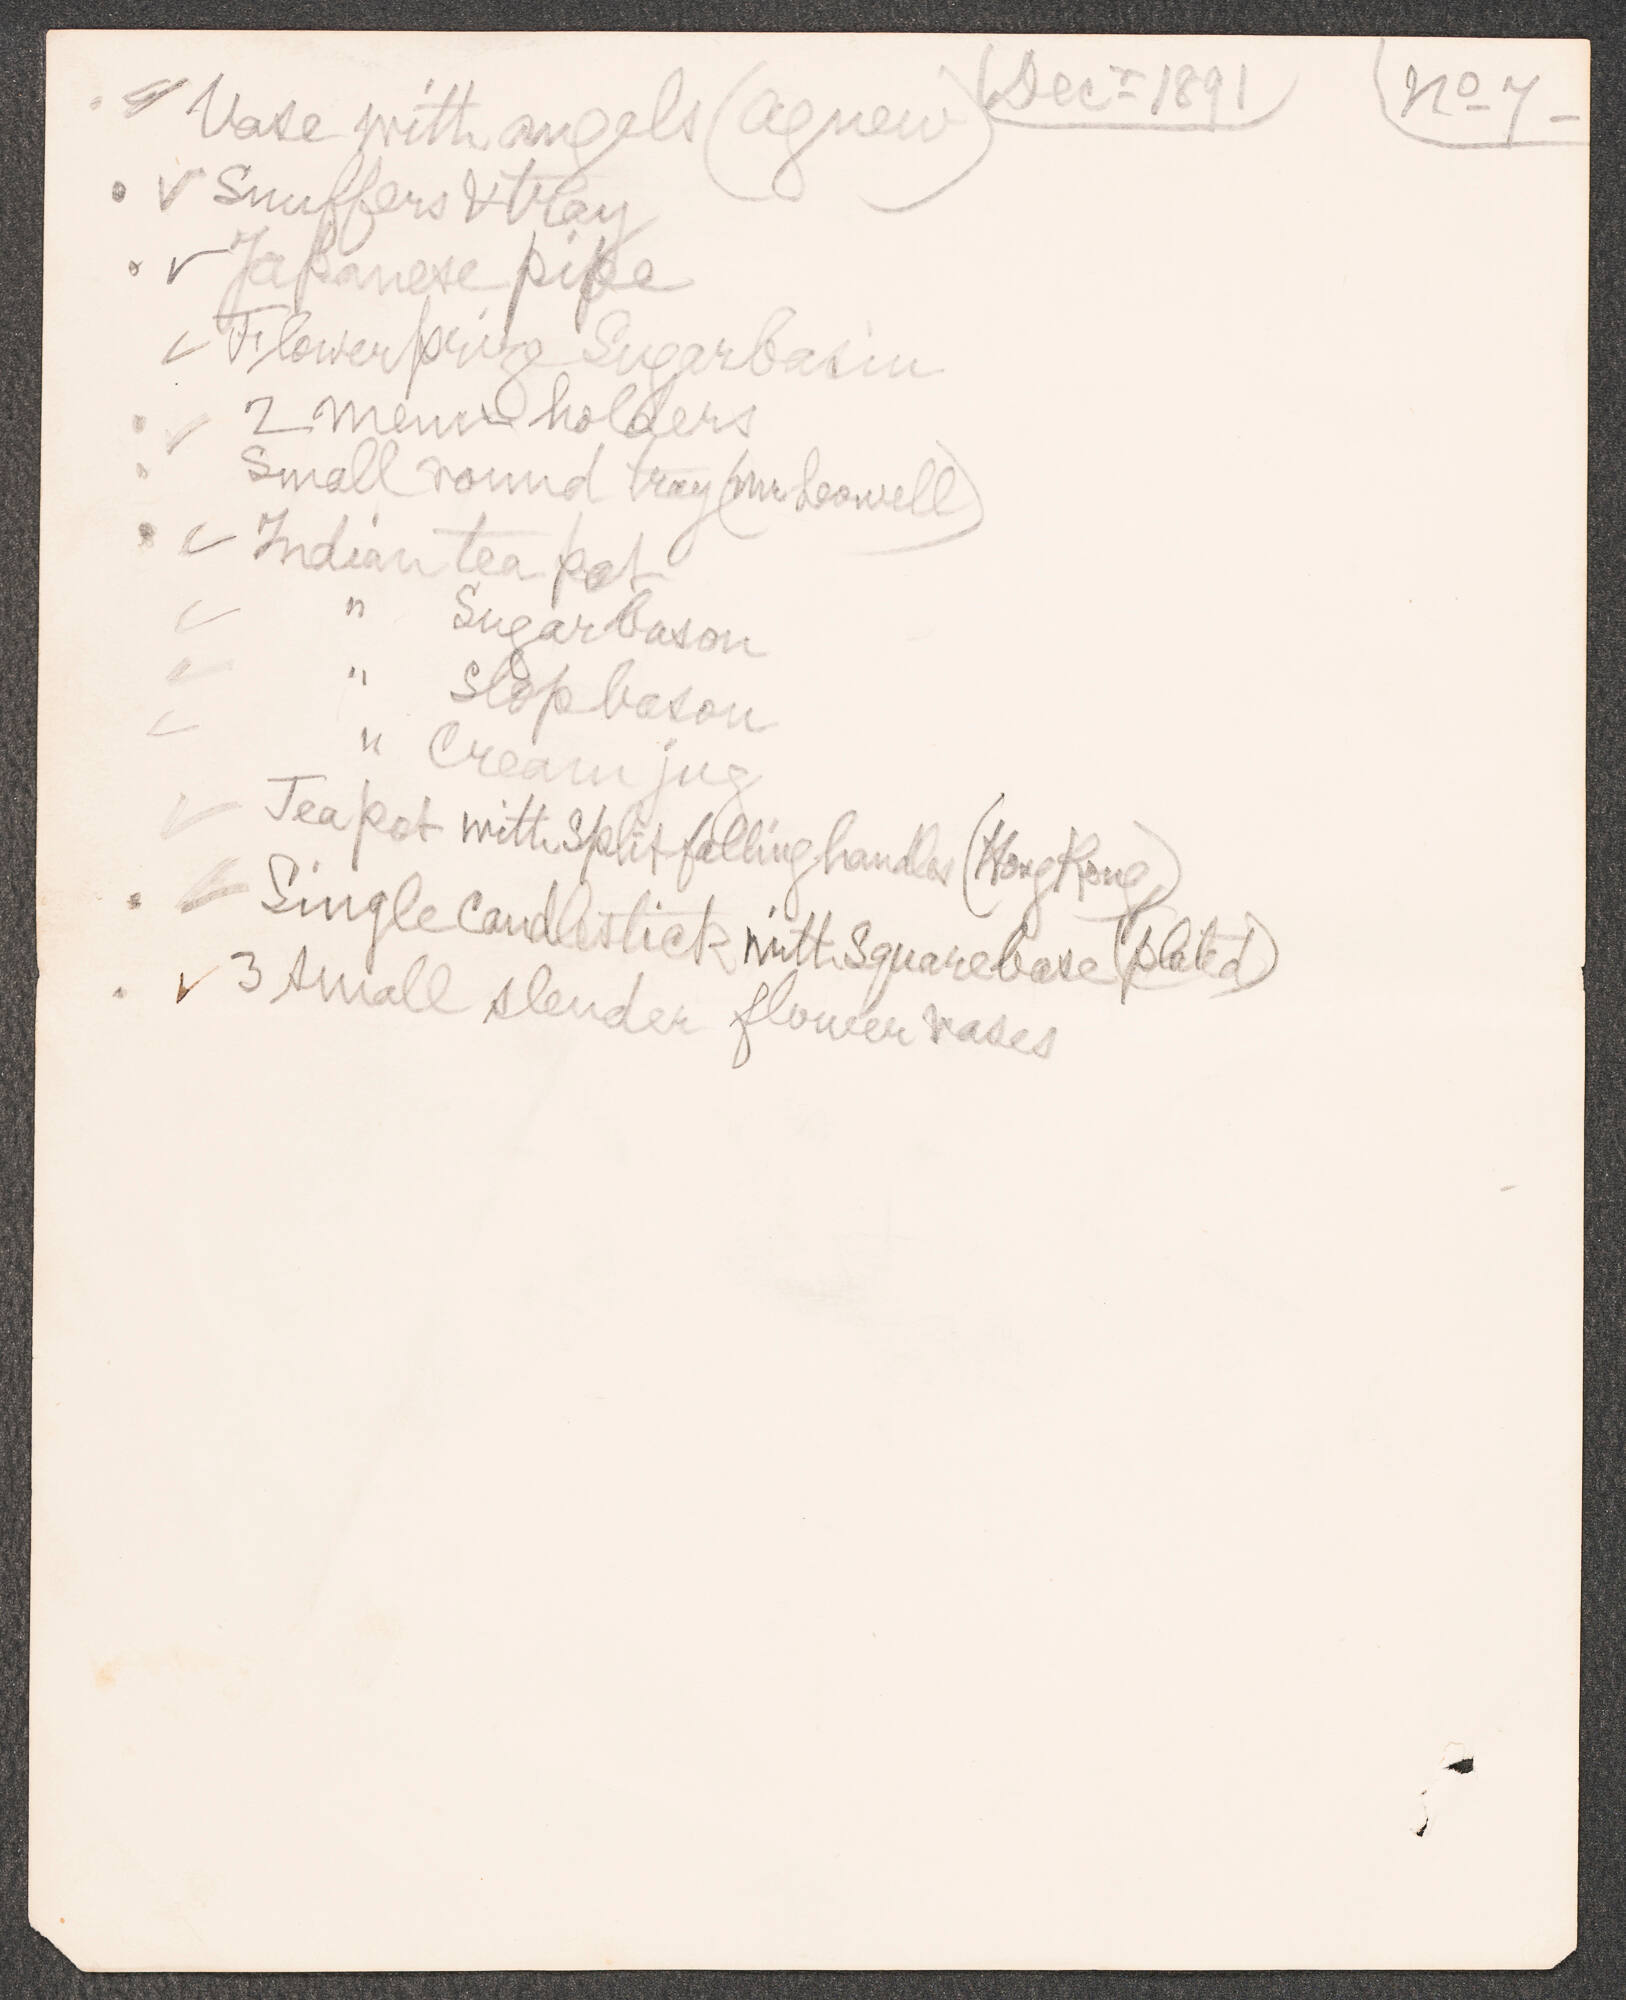 (Decr 1891) (No 7-
✓ Vase with angels (Agnew)
• ✓ Snuffers & tray
• ✓ Japanese pipe
✓ Flower prize Sugar basin
• ✓ 2 Menu holders
• Small round tray (Mr Leowell)
• ✓ Indian tea pot
✓ " Sugar bason
✓ " Slop bason
✓ " Cream jug
✓ Tea pot with Split falling handles (Hong Kong)
• ✓ Single Candlestick with Square base (plated)
• ✓ 3 small slender flower vases